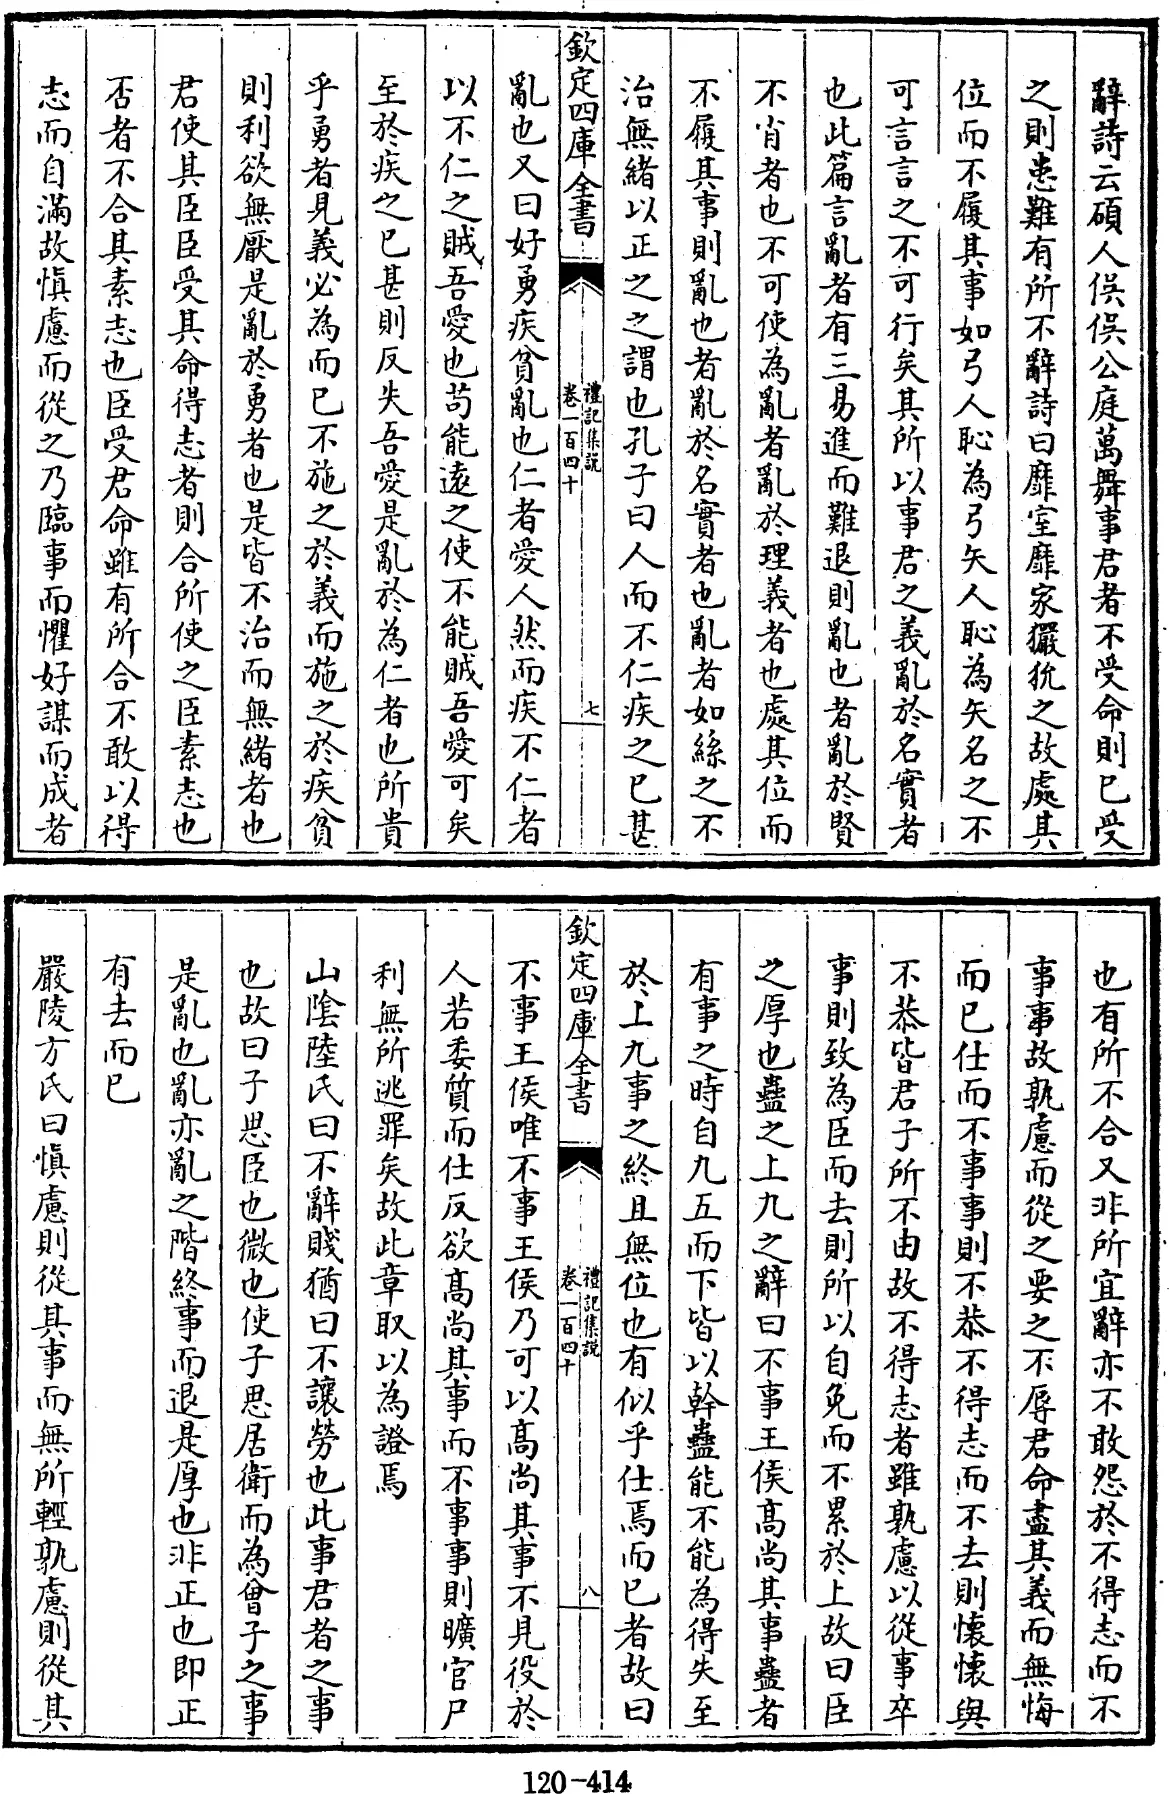 辭詩云碩人俣俣公庭萬舞事君者不受命則已受
之則患難有所不辭詩曰靡室靡家玁狁之故處其
位而不履其事如弓人恥為弓矢人恥為矢名之不
可言言之不可行矣其所以事君之義亂於名實者
也此篇言亂者有三易進而難退則亂也者亂於賢
不肖者也不可使為亂者亂於理義者也處其位而
不履其事則亂也者亂於名實者也亂者如絲之不
治無緒以正之之謂也孔子曰人而不仁疾之已甚
欽定四庫全書
禮記集說
卷一百四十
七
亂也又曰好勇疾貧亂也仁者愛人然而疾不仁者
以不仁之賊吾愛也苟能遠之使不能賊吾愛可矣
至於疾之已甚則反失吾愛是亂於為仁者也所貴
乎勇者見義必為而已不施之於義而施之於疾貧
則利欲無厭是亂於勇者也是皆不治而無緒者也
君使其臣臣受其命得志者則合所使之臣素志也
否者不合其素志也臣受君命雖有所合不敢以得
志而自滿故慎慮而從之乃臨事而懼好謀而成者
也有所不合又非所宜辭亦不敢怨於不得志而不
事事故孰慮而從之要之不辱君命盡其義而無悔
而已仕而不事事則不恭不得志而不去則懷懷與
不恭皆君子所不由故不得志者雖孰慮以從事卒
事則致為臣而去則所以自免而不累於上故曰臣
之厚也蠱之上九之辭曰不事王侯高尚其事蠱者
有事之時自九五而下皆以幹蠱能不能為得失至
於上九事之終且無位也有似乎仕焉而已者故曰
欽定四庫全書
禮記集說
卷一百四十
八
不事王侯唯不事王侯乃可以高尚其事不見役於
人若委質而仕反欲高尚其事而不事事則曠官尸
利無所逃罪矣故此章取以為證焉
山陰陸氏曰不辭賤猶曰不讓勞也此事君者之事
也故曰子思臣也微也使子思居衛而為曾子之事
是亂也亂亦亂之階終事而退是厚也非正也即正
有去而已
嚴陵方氏曰慎慮則從其事而無所輕孰慮則從其
120-414